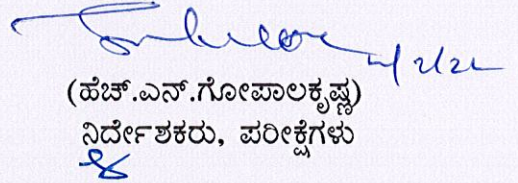 (ಹೆಚ್.ಎನ್.ಗೋಪಾಲಕೃಷ್ಣ)
ನಿರ್ದೇಶಕರು, ಪರೀಕ್ಷೆಗಳು